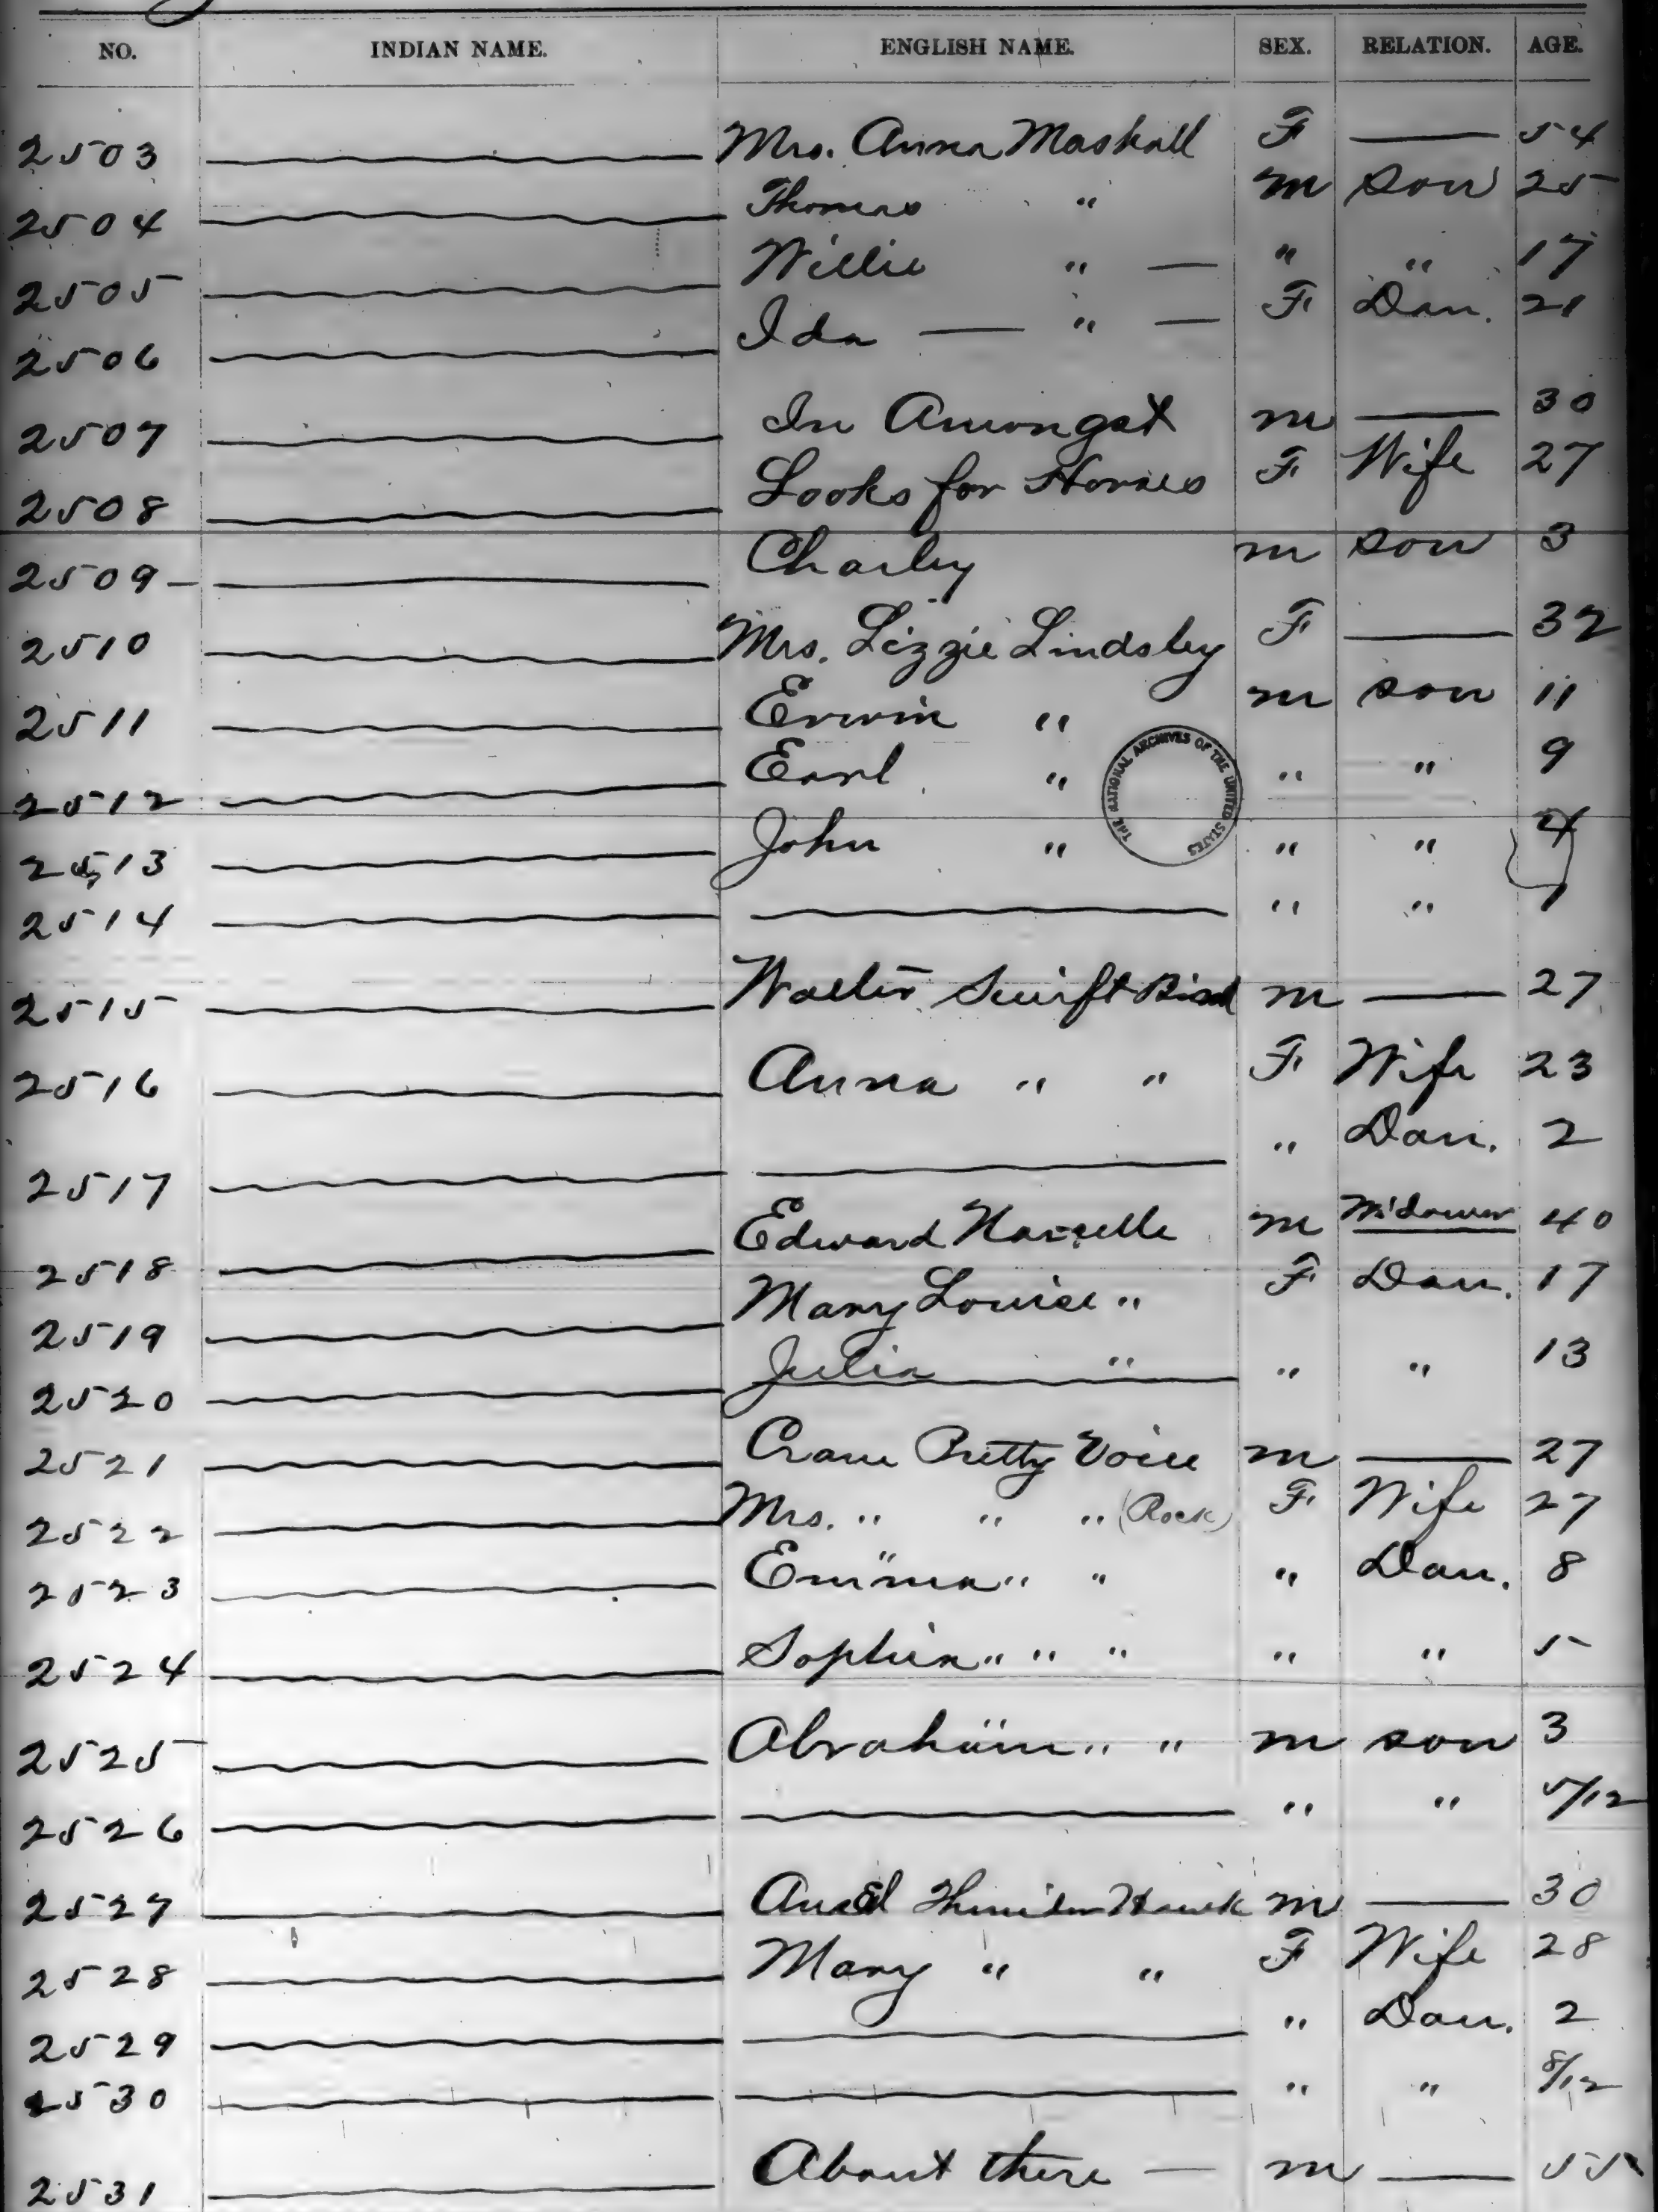 NO. INDIAN NAME. ENGLISH NAME. SEX. RELATION. AGE.
2503 Mrs. Anna Maskall F — 54
2504 Thomas " m son 25
2505 Willie " — " " 17
2506 Ida — " — F Dau. 21
2507 In Amongst m — 30
2508 Looks for Horses F Wife 27
2509 Charley m son 3
2510 Mrs. Lizzie Lindsley F — 32
2511 Erwin " m son 11
2512 Earl " " " 9
THE NATIONAL ARCHIVES OF THE UNITED STATES
2513 John " " " 4
2514 — " " 1
2515 Walter Swift Bird m — 27
2516 Anna " " F Wife 23
2517 — " Dau. 2
2518 Edward m Widower 40
2519 Mary Louise " F Dau. 17
2520 Julia " " " 13
2521 Crane Pretty Voice m — 27
2522 Mrs. " " " (Rock) F Wife 27
2523 Emma " " " Dau. 8
2524 Sophia " " " " " 5
2525 Abraham " " m son 3
2526 — " " 5/12
2527 Thunder Hawk m — 30
2528 Mary " " F Wife 28
2529 — " Dau. 2
2530 — " " 8/12
2531 About there — m — 55